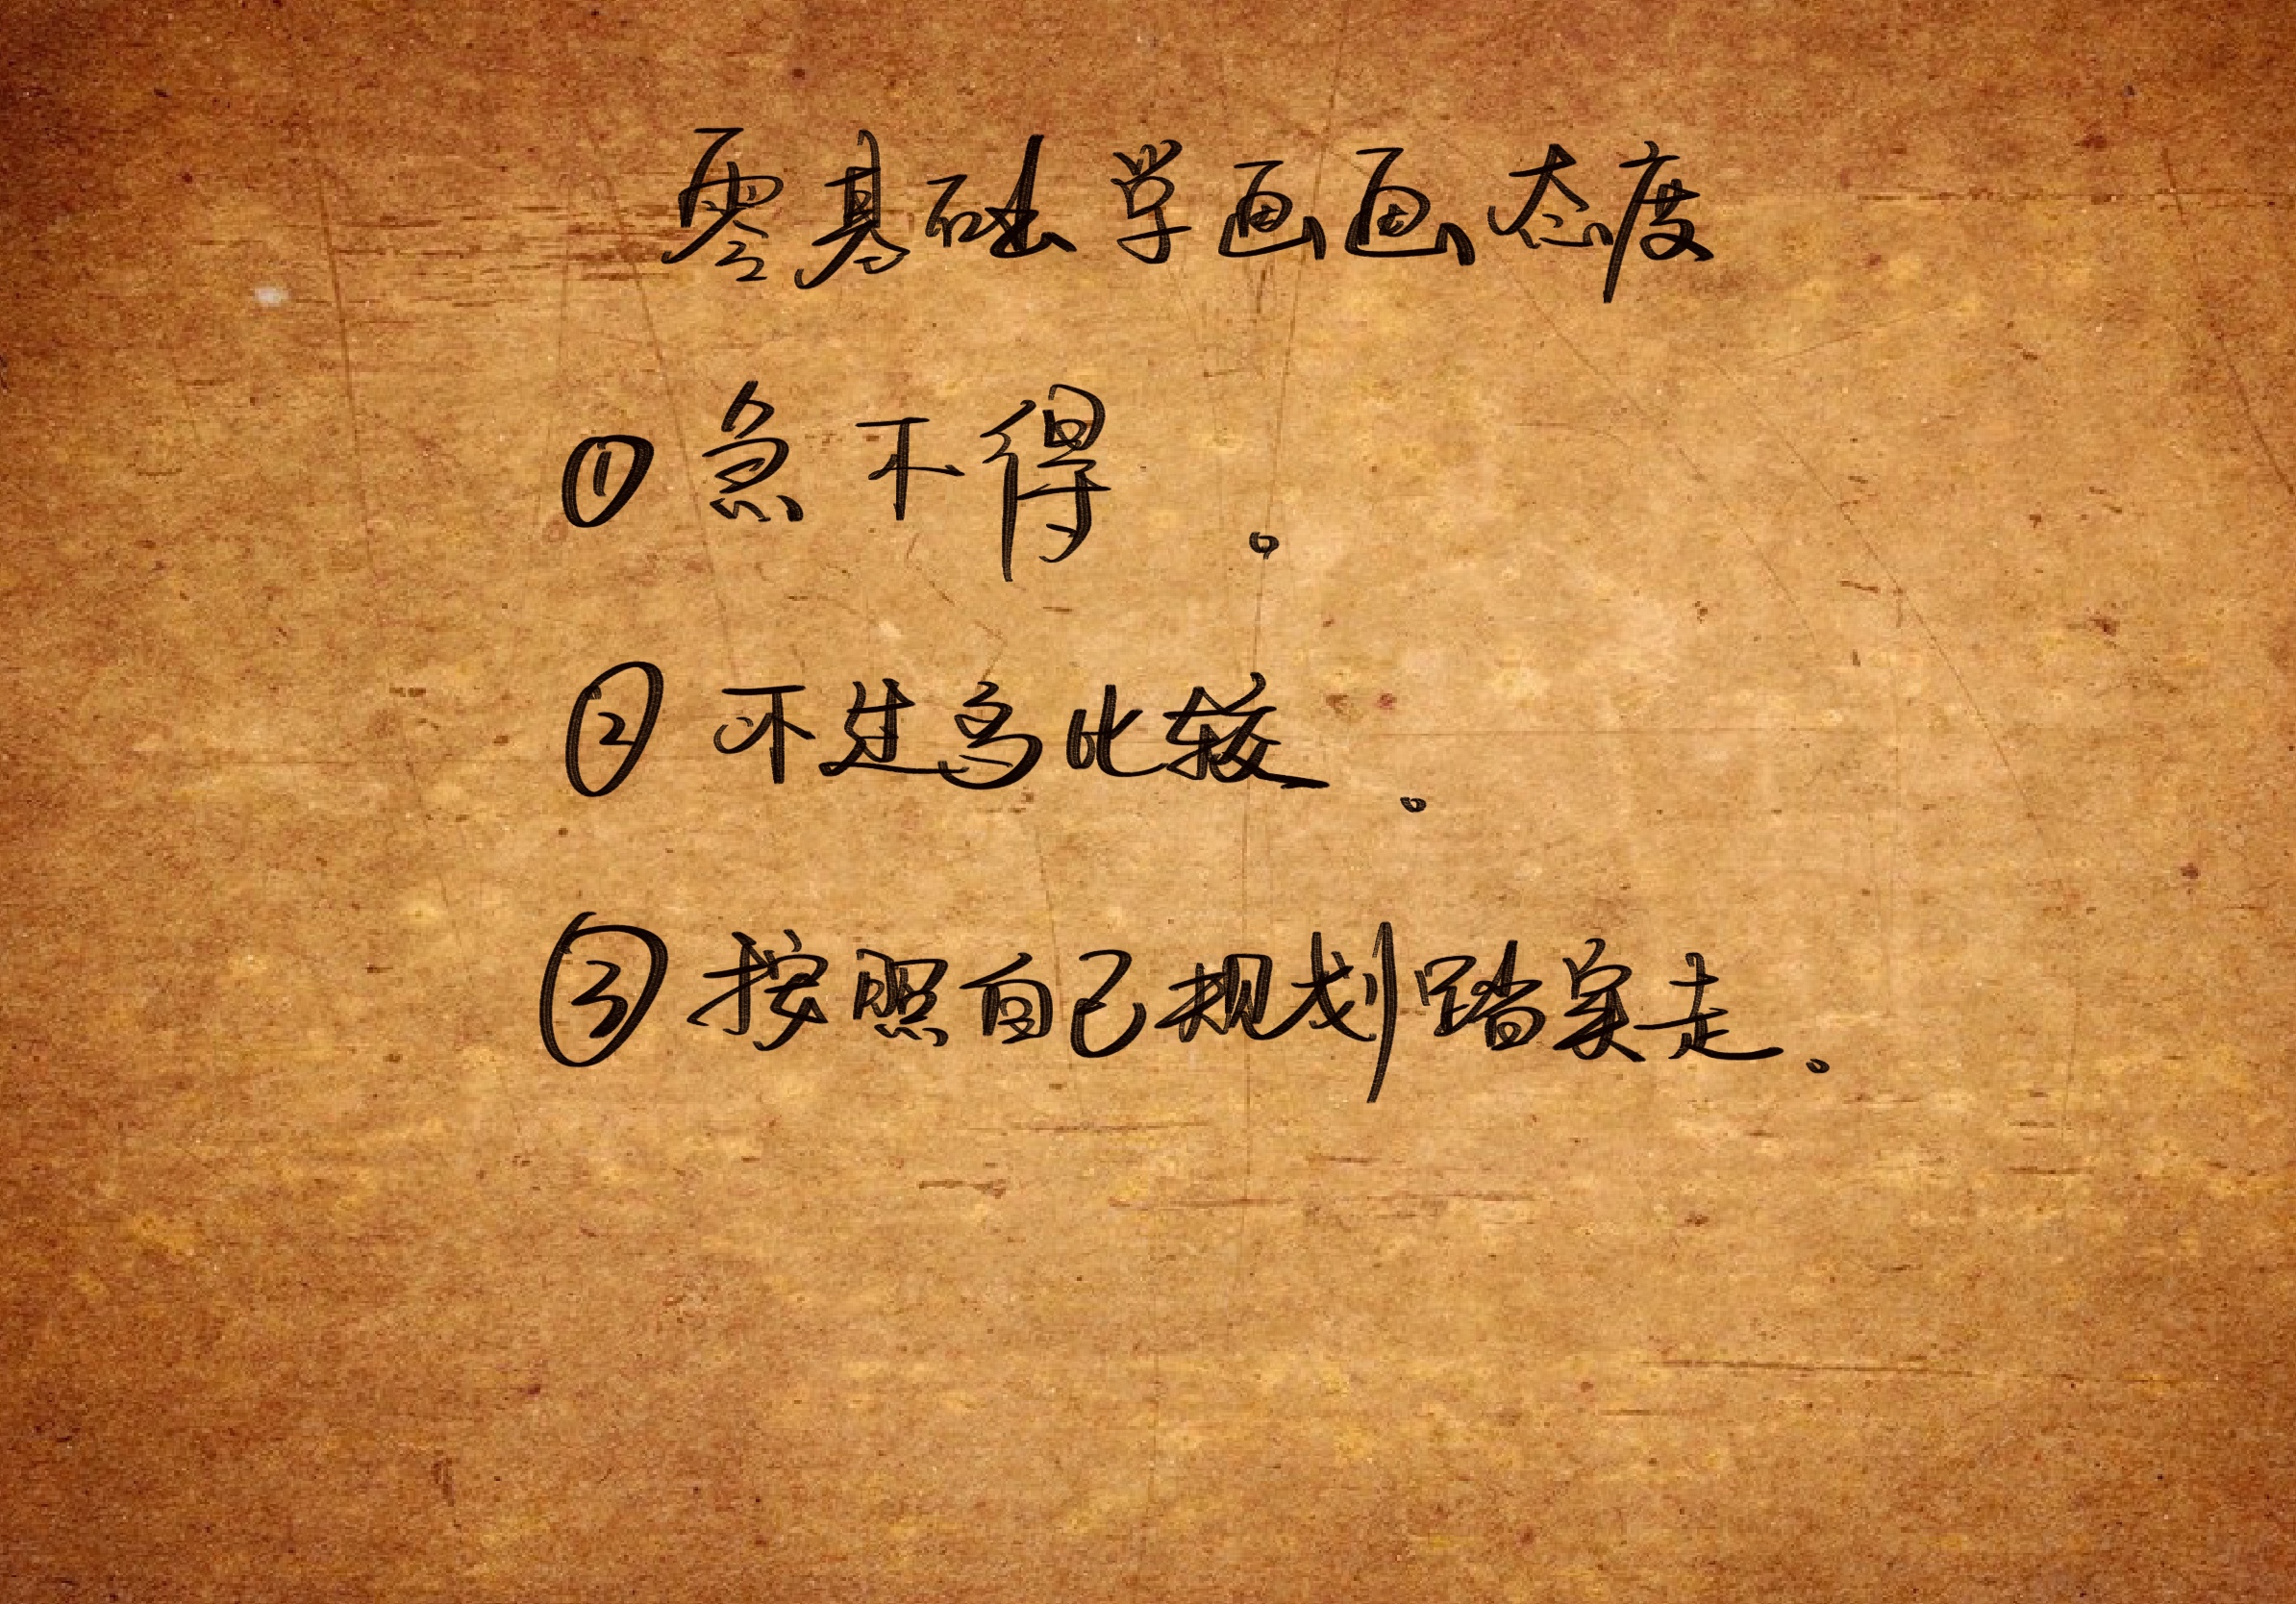 零基础学画画态度
①急不得。
②不过多比较。
③按照自己规划踏实走。